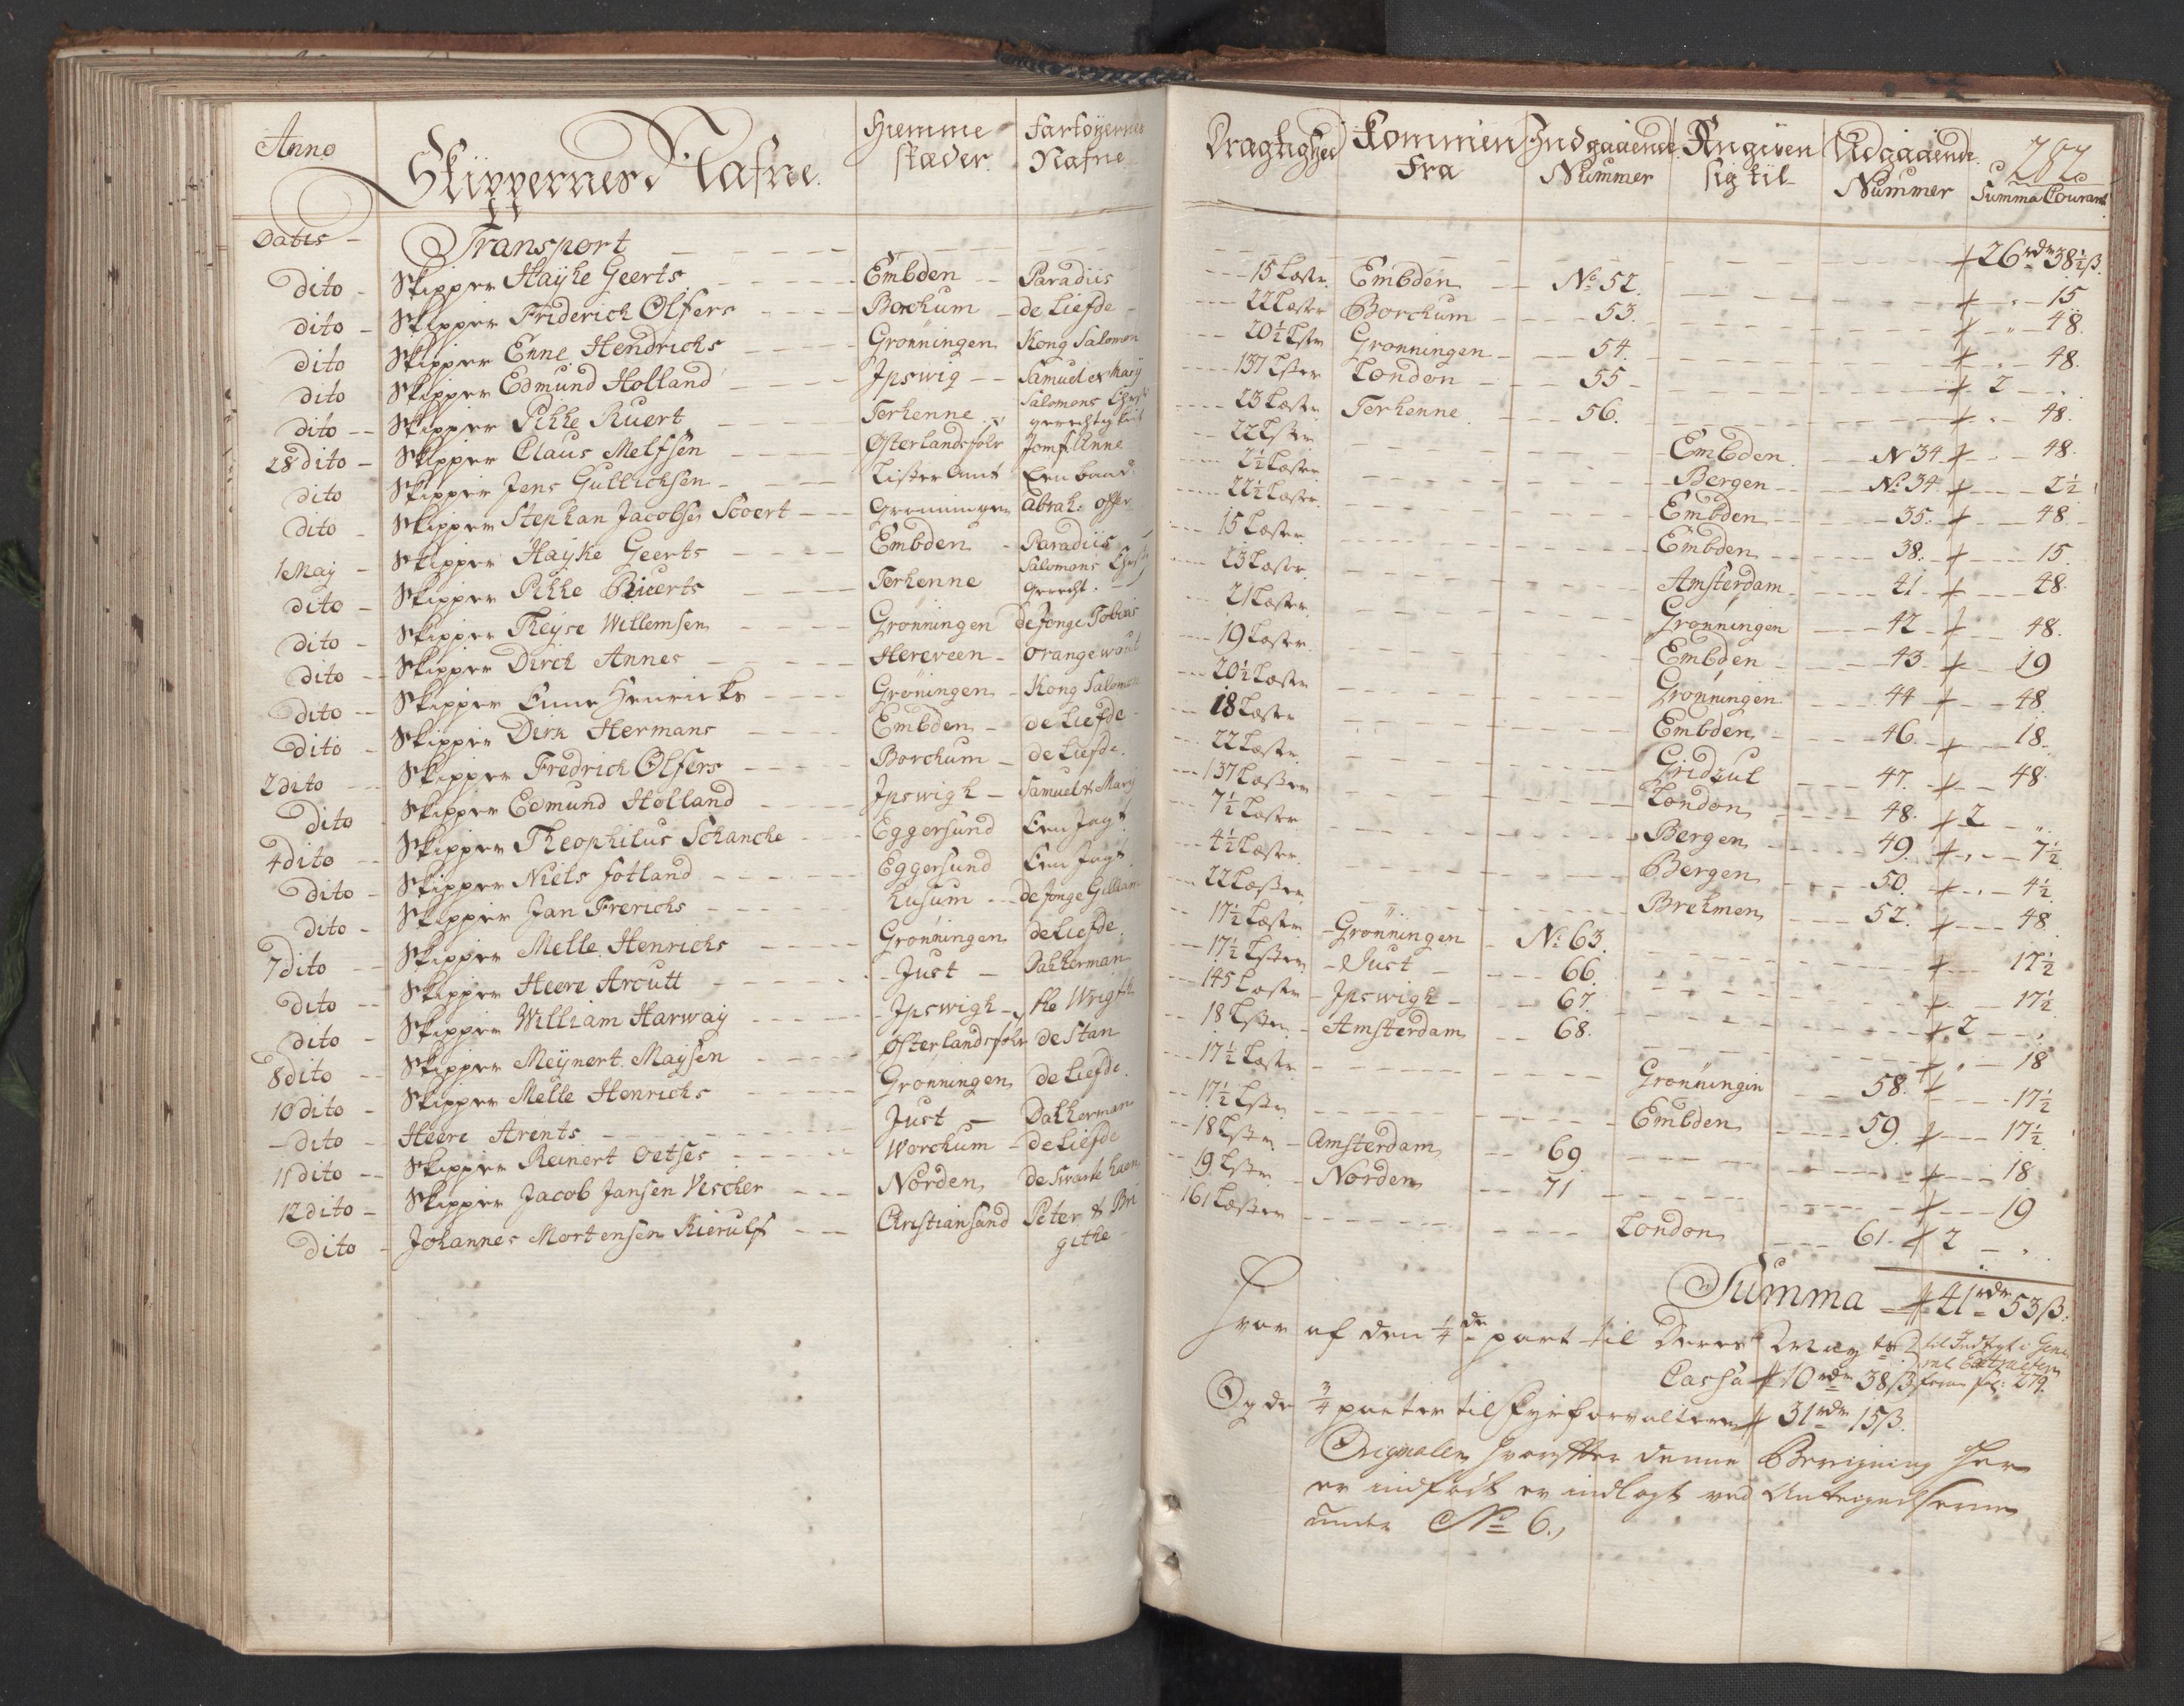 Anno Skippernes Nafne. Hiemme stæder. Fartøyernes Nafne Dragtighed Kommen Fra Indgaaende Nummer Angiven sig til Udgaaende Nummer 282 Summa Courant.
Datis - Transport 26 rdr 38½ ß.
dito - Skipper Hayke Geerts. Embden Paradiis 15 Læster Embden No 52. 15
dito - Skipper Friderich Olfers Borchum de Liefde 22 Læster Borchum 53. 48.
dito Skipper Enne Hendrichs Grønningen Kong Salomon 20½ Lster Grønningen 54. 48.
dito Skipper Edmund Holland Ipswig Samuel & Mary 137 Lster London 55 2
dito Skipper Pikke Ruert Terhenne Salomons gerechtigkeit 23 Læster Terhenne 56. 48.
28 dito - Skipper Claus Melfsen Østerlandsføhr Jomf: Anne 22 Lster Embden. N 34 48.
dito Skipper Jens Gullichsen Lister Amt Een baad 2½ Læster Bergen No 34 2½
dito Skipper Stephan Jacobsen Scoert Grønningen Abrah: offer 22½ Læster Embden 35. 48.
1 May Skipper Hayke Geerts Embden Paradiis 15 Læster Embden 38. 15.
dito Skipper Pikke Ruerts Terhenne Salomons gerecht. 23 Læster Amsterdam 41 48.
dito Skipper Theyse Willemsen Grønningen de Jonge Tobias 21 Læster Grønningen 42 48.
dito Skipper Dirch Annes Hereveen Orange wout 19 Læster Embden 43 19
dito Skipper Enne Henricks Grøningen Kong Salomon 20½ Læster Grønningen 44 48.
dito Skipper Dirk Hermans Embden de Liefde 18 Læster Embden 46. 18.
2 dito Skipper Fredrich Olfers Borchum de Liefde. 22 Læster Gridzul 47. 48.
dito Skipper Edmund Holland Ipswigh Samuel & Mary 137 Læster London 48. 2
4 dito Skipper Theophilus Schanche Eggersund Een Jagt 7½ Læster Bergen 49. 7½
dito Skipper Niels Fotland Eggersund Een Jagt 4½ Læster Bergen 50. 4½
dito - Skipper Jan Frerichs Husum de Jonge Gilliam 22 Læster Brehmen 52. 48
7 dito Skipper Melle Henrichs Grønningen de Liefde. 17½ Læster Grønningen No 63. 17½
dito Skipper Heere Arcutt Just Dakkerman 17½ Lster Just 66. 17½
dito - Skipper William Harway Ipswigh the Wright 145 Læster Ipswigh 67. 2
8 dito Skipper Meynert Maysen Østerlandsføhr de Stan 18 Lster Amsterdam 68. 18
10 dito - Skipper Melle Henrichs Grønningen de Liefde. 17½ Læster Grønningen 58. 17½
- dito - Heere Arents Just Dakkerman 17½ Lster Embden 59. 17½
11 dito Skipper Reinert Oetses Worchum de Liefde 18 Lster Amsterdam 69 18
12 dito - Skipper Jacob Jansen Vescher Norden de Swarte haen 19 Lster Norden 71 19
dito - Johannes Mortensen Kierulf Christiansand Peter & Bri githe 161 Læster London 61. 2
Summa 41 rdr 53 ß.
Hvor af den ¼ de part til Deres May ts til Indtægt i Gene
Cassa 10 rdr 38 ß foran fol: 279.
Og de ¾ parter til Fyrforvalteren 31 rdr 15 ß.
Originalen hvorefter denne Beregning her
er indført er indlagt ved Antegnelserne
under No 6.,